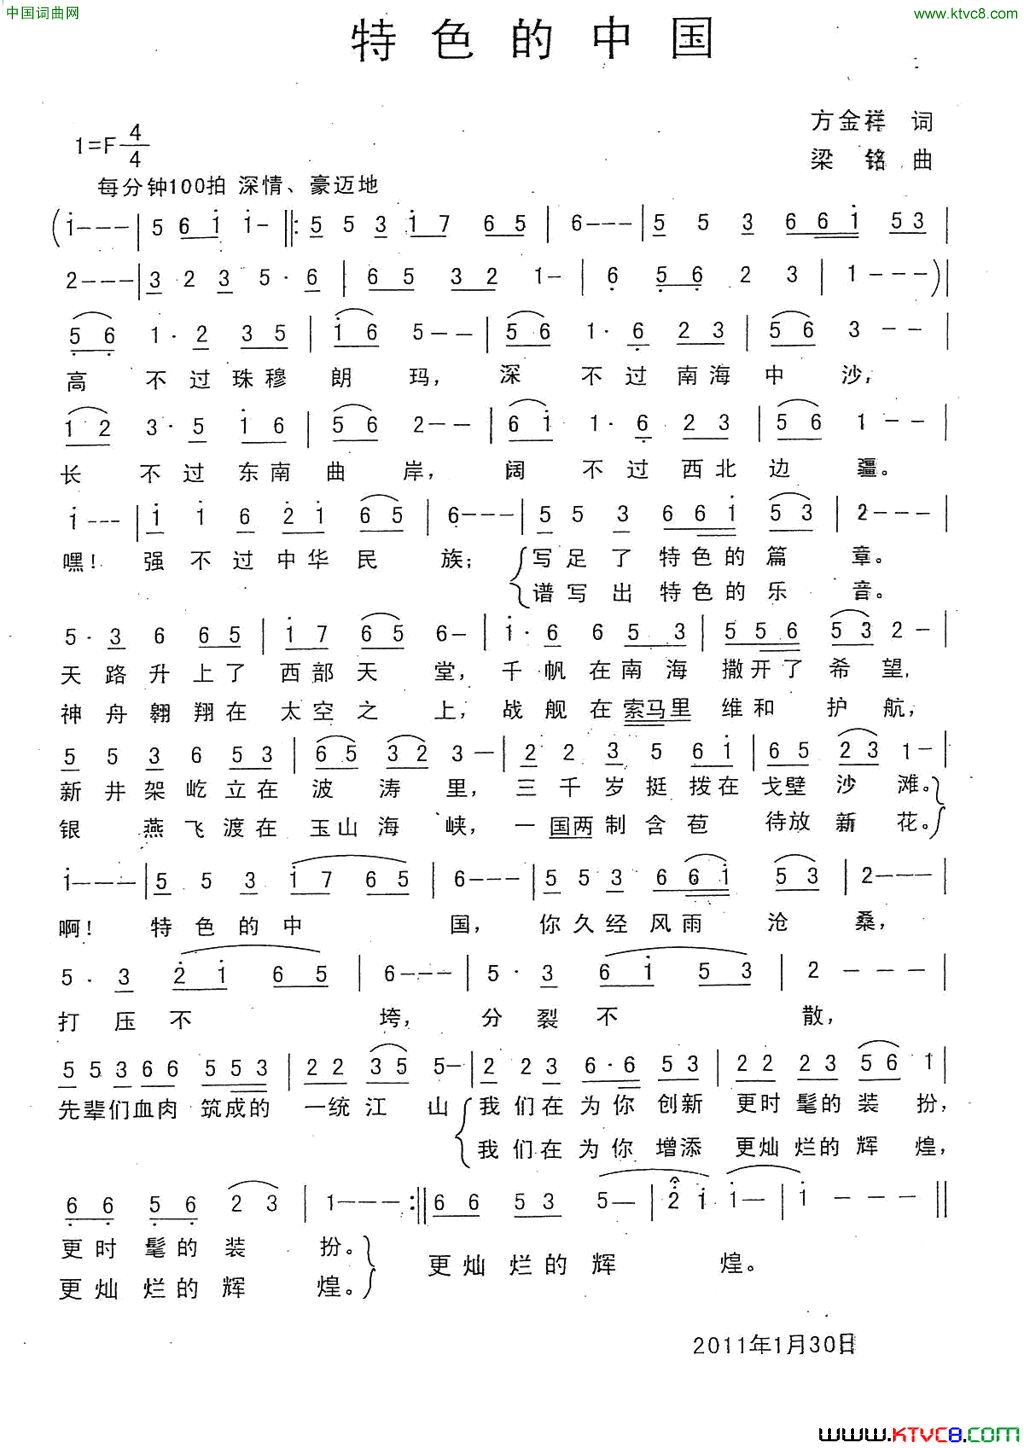 中国词曲网
www.ktvc8.com
特色的中国
方金祥 词
1=F 4/4
梁 铭 曲
每分钟100拍 深情、豪迈地
(i--- | 5 6 i i- |: 5 5 3 i 7 6 5 | 6--- | 5 5 3 6 6 i 5 3 |
2--- | 3 2 3 5· 6 | 6 5 3 2 1- | 6 5 6 2 3 | 1---)|
5 6 1· 2 3 5 | i 6 5-- | 5 6 1· 6 2 3 | 5 6 3-- |
高 不过珠穆 朗 玛, 深 不过南海中 沙,
1 2 3· 5 1 6 | 5 6 2-- | 6 i 1· 6 2 3 | 5 6 1-- |
长 不过东南曲 岸, 阔 不过西北边 疆。
i--- | i i 6 2 i 6 5 | 6--- | 5 5 3 6 6 i 5 3 | 2--- |
嘿! 强不过中华民 族; 写足了特色的篇 章。
谱写出特色的乐 音。
5· 3 6 6 5 | i 7 6 5 6- | i· 6 6 5 3 | 5 5 6 5 3 2- |
天路升上了西部天 堂, 千帆在南海 撒开了希望,
神舟翱翔在 太空之 上, 战舰在索马里 维和 护航,
5 5 3 6 5 3 | 6 5 3 2 3- | 2 2 3 5 6 i | 6 5 2 3 1- |
新井架屹立在波 涛 里, 三千岁挺拨在戈壁沙 滩。
银 燕飞渡在玉山海 峡, 一国两制含苞 待放新 花。
i--- | 5 5 3 i 7 6 5 | 6--- | 5 5 3 6 6 i 5 3 | 2--- |
啊! 特色的中 国, 你久经风雨 沧 桑,
5· 3 2 i 6 5 | 6--- | 5· 3 6 i 5 3 | 2 --- |
打压不 垮, 分裂不 散,
5 5 3 6 6 5 5 3 | 2 2 3 5 5- | 2 2 3 6· 6 5 3 | 2 2 2 3 5 6 1 |
先辈们血肉 筑成的 一统江 山 我们在为你创新 更时髦的装 扮,
我们在为你增添 更灿烂的辉 煌,
6 6 5 6 2 3 | 1--- :|| 6 6 5 3 5- | 2 i i- | i --- ||
更时髦的装 扮。
更灿烂的辉 煌。
更灿烂的辉 煌。
2011年1月30日
www.KTVC8.com